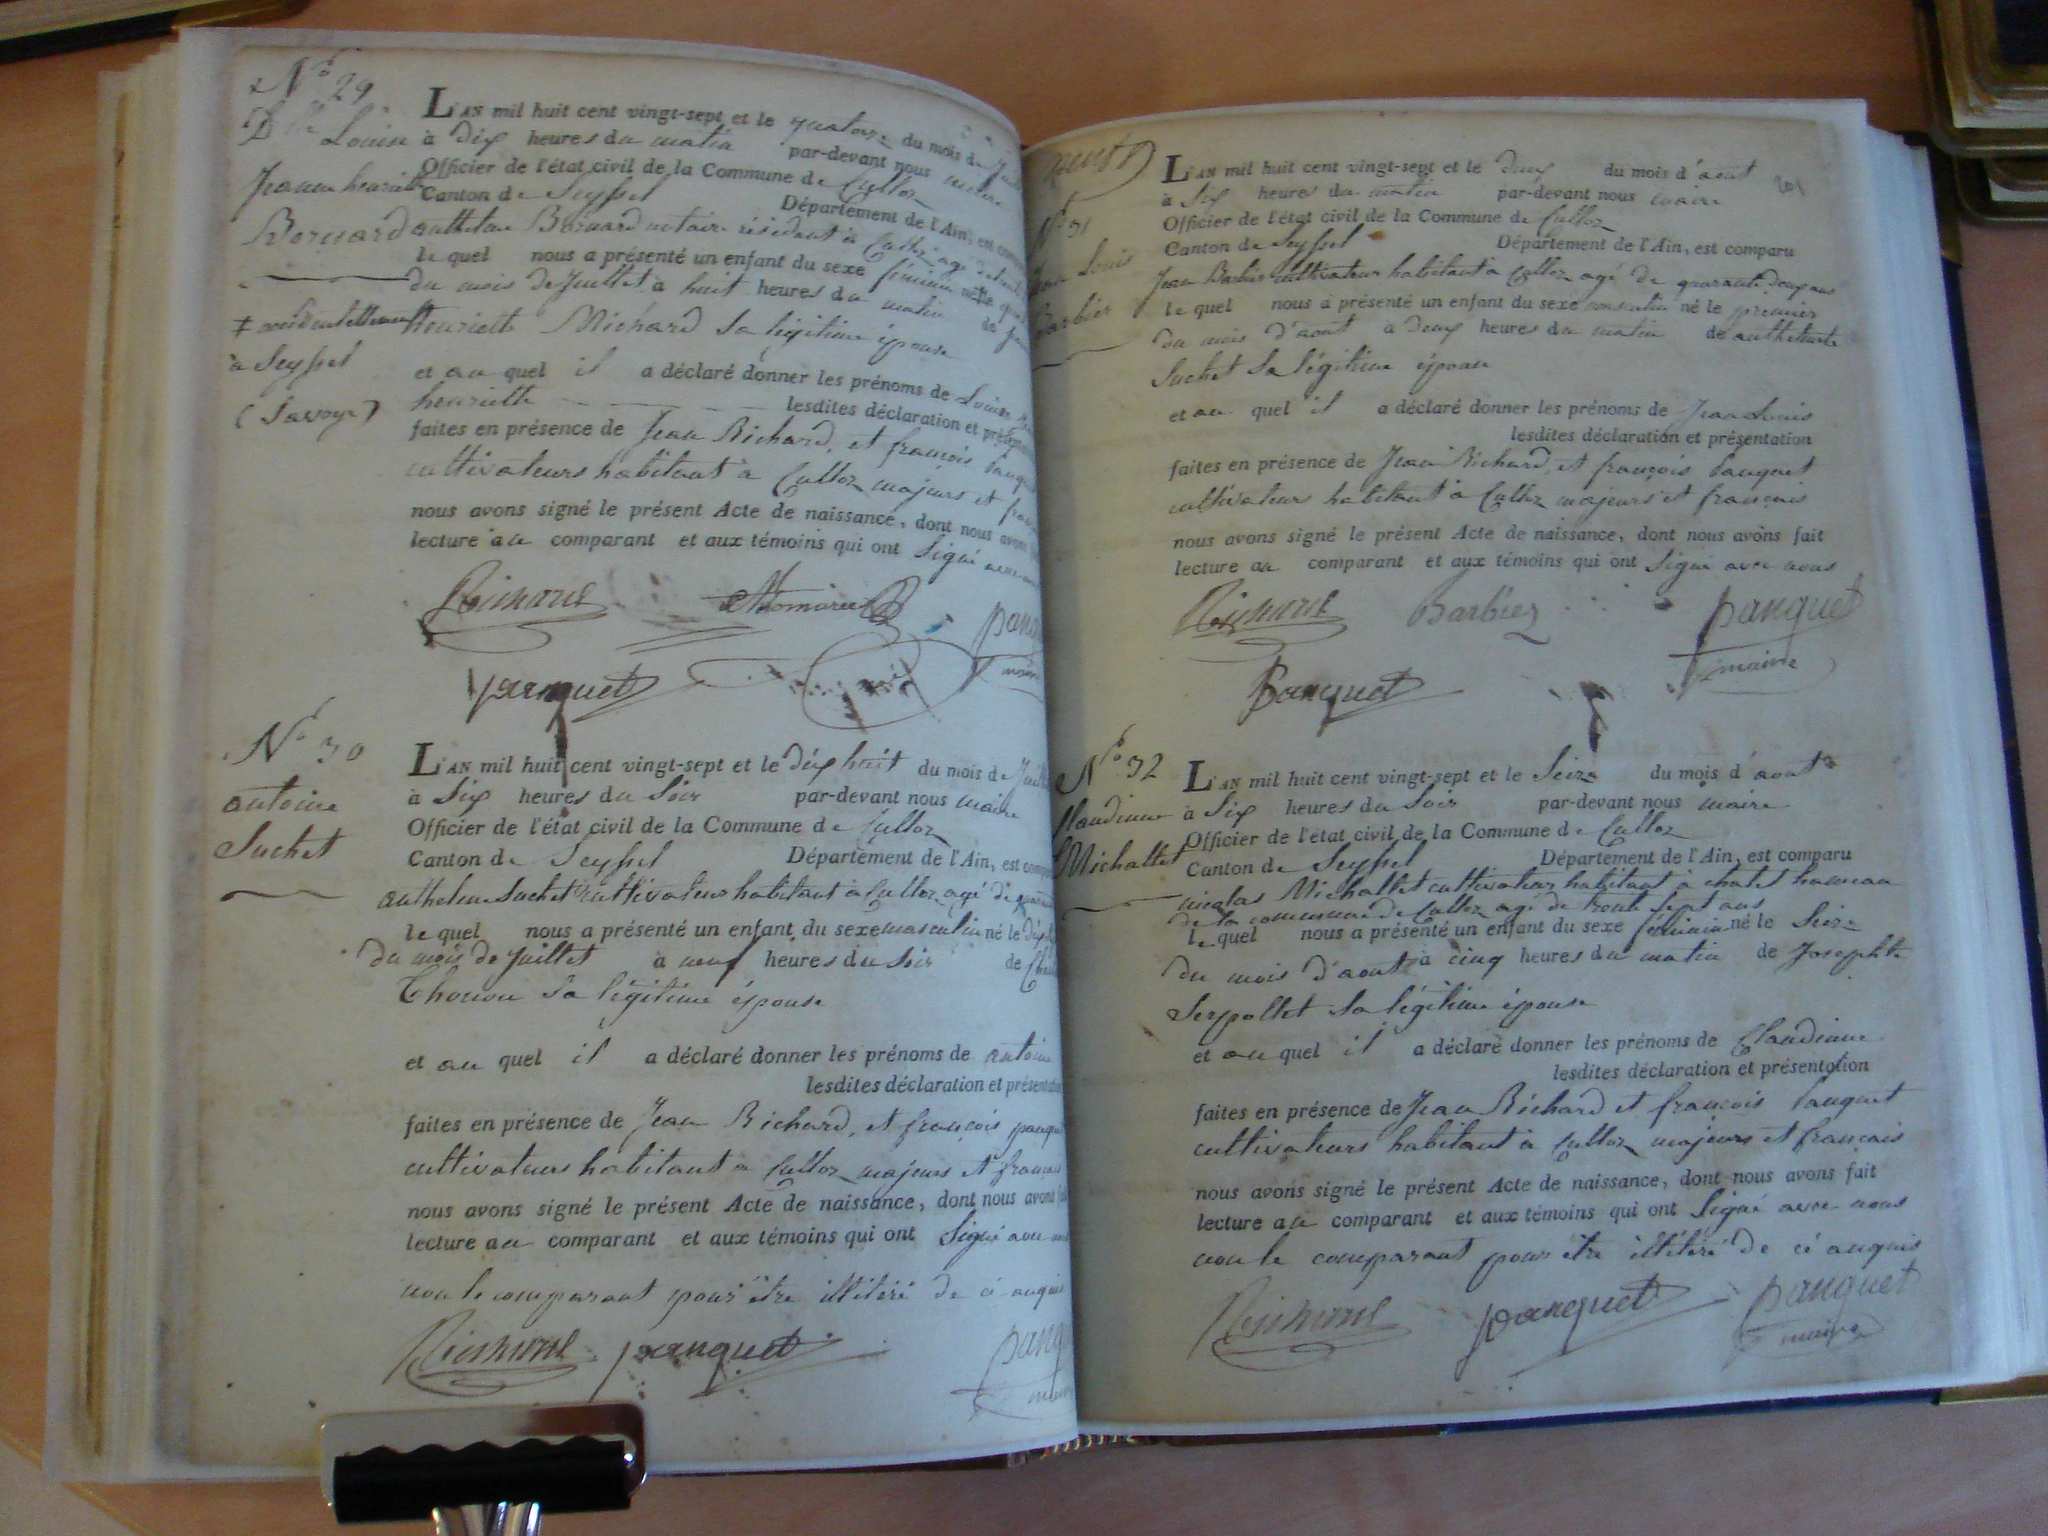 Nº 29
Dlle Louise
Jeanne henriette
Bernard
≠ accidentellement
à Seyssel
(Savoye)
L'AN mil huit cent vingt-sept et le quatorze du mois de
à dix heures du matin par-devant nous maire
Officier de l'état civil de la Commune de Culloz
Canton de Seyssel Département de l'Ain, est
anthelme Bernard notaire résidant à Culloz agé de
le quel nous a présenté un enfant du sexe féminin née
du mois de Juillet à huit heures du matin de
henriette Michard sa légitime épouse
et au quel il a déclaré donner les prénoms de Louise
henriette lesdites déclaration et
faites en présence de Jean Richard, et françois
cultivateurs habitant à Culloz majeurs et
nous avons signé le présent Acte de naissance, dont nous avons
lecture au comparant et aux témoins qui ont Signé avec
Richard
panquet
Nº 30
antoine
Suchet
L'AN mil huit cent vingt-sept et le dix huit du mois de
à Six heures du Soir par-devant nous maire
Officier de l'état civil de la Commune de Culloz
Canton de Seyssel Département de l'Ain, est
anthelme Suchet cultivateur habitant à Culloz agé de
le quel nous a présenté un enfant du sexe masculin né le
du mois de Juillet à neuf heures du Soir de
Sa légitime épouse
et au quel il a déclaré donner les prénoms de antoine
lesdites déclaration et
faites en présence de Jean Richard, et françois
cultivateurs habitant à Culloz majeurs et français
nous avons signé le présent Acte de naissance, dont nous avons
lecture au comparant et aux témoins qui ont Signé avec
non le comparant pour être illitéré de ce
Richard panquet
201
Nº 31
Jean Louis
Barbier
L'AN mil huit cent vingt-sept et le deux du mois d'aout
à Six heures du matin par-devant nous maire
Officier de l'état civil de la Commune de Culloz
Canton de Seyssel Département de l'Ain, est comparu
Jean Barbier cultivateur habitant à Culloz agé de quarante deux ans
le quel nous a présenté un enfant du sexe masculin né le premier
du mois d'aout à deux heures du matin de
Suchet Sa légitime épouse
et au quel il a déclaré donner les prénoms de Jean Louis
lesdites déclaration et présentation
faites en présence de Jean Richard, et françois panquet
cultivateurs habitant à Culloz majeurs et français
nous avons signé le présent Acte de naissance, dont nous avons fait
lecture au comparant et aux témoins qui ont Signé avec nous
Richard Barbier panquet
maire
panquet
Nº 32
Claudinne
Michallet
L'AN mil huit cent vingt-sept et le Seize du mois d'aout
à Six heures du Soir par-devant nous maire
Officier de l'état civil de la Commune de Culloz
Canton de Seyssel Département de l'Ain, est comparu
nicolas Michallet cultivateur habitant à chatel hameau
de la commune de Culloz agé de trente sept ans
le quel nous a présenté un enfant du sexe féminin né le Seize
du mois d'aout à cinq heures du matin de Josephte
Serpollet Sa légitime épouse
et au quel il a déclaré donner les prénoms de Claudinne
lesdites déclaration et présentation
faites en présence de Jean Richard et françois panquet
cultivateurs habitant à Culloz majeurs et français
nous avons signé le présent Acte de naissance, dont nous avons fait
lecture au comparant et aux témoins qui ont Signé avec nous
non le comparant pour être illitéré de ce anquis
Richard panquet panquet
maire